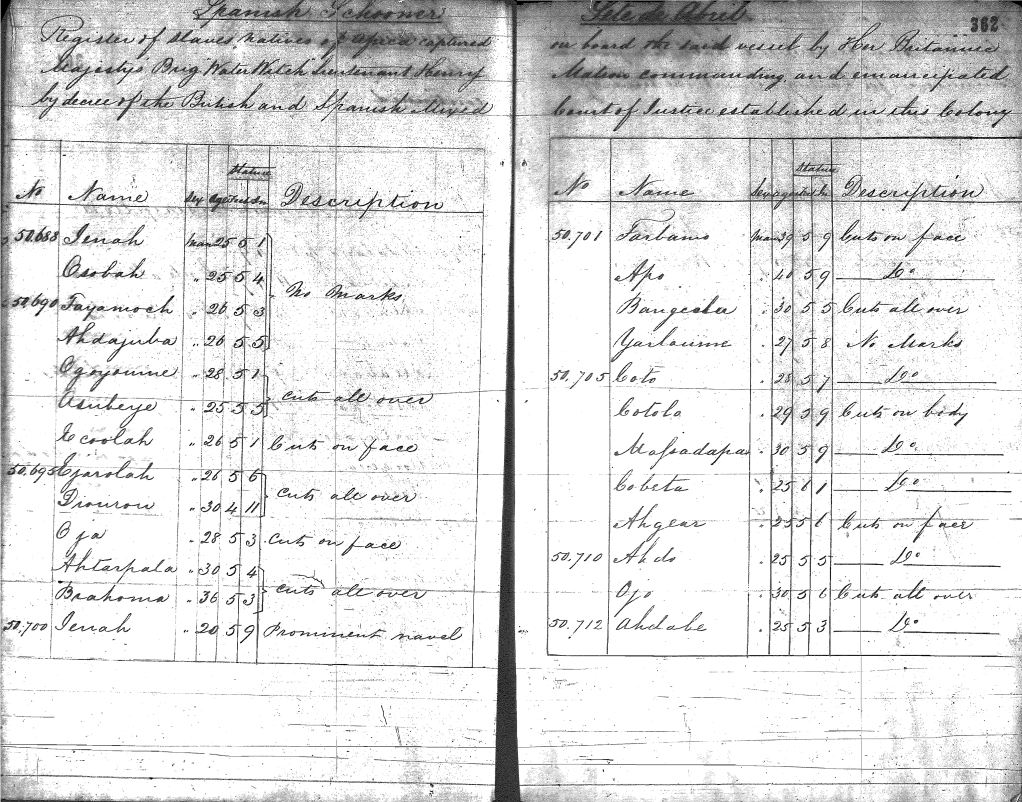 Spanish Schooner
Register of Slaves Natives of Africa captured
Majesty's Brig Water Witch Lieutenant Henry
by decree of the British and Spanish Mixed
Stature
No Name Sex Age Feet In Description
50.688 Jenah Man 25 5 1
Osobah " 25 5 4
No Marks
50.690 Fayamoch " 26 5 3
Ahdajuba " 26 5 5
Ogoyoume " 28 5 1
Cuts all over
Asubeye " 25 5 5
Ecoolah " 26 5 1 Cuts on face
50.695 Ejarolah " 26 5 6
Cuts all over
Diouron " 30 4 11
Oja " 28 5 3 Cuts on face
Ahtarpala " 30 5 4
Cuts all over
Brahoma " 36 5 3
50.700 Jenah " 20 5 9 Prominent navel
Sete de Abril
362
on board the said vessel by Her Britannic
Matson commanding, and emancipated
Court of Justice established in this Colony
Stature
No Name Sex Age Feet In Description
50.701 Farbamo Man 39 5 9 Cuts on face
Apo " 40 5 9 Do
" 30 5 5 Cuts all over
Yarloume " 27 5 8 No Marks
50.705 Coto " 28 5 7 Do
Cotola " 29 5 9 Cuts on body
Massadapa " 30 5 9 Do
Cobeta " 25 6 1 Do
Ahgear " 25 5 6 Cuts on face
50.710 Ahdo " 25 5 5 Do
Ojo " 30 5 6 Cuts all over
50.712 Ahdabe " 25 5 3 Do